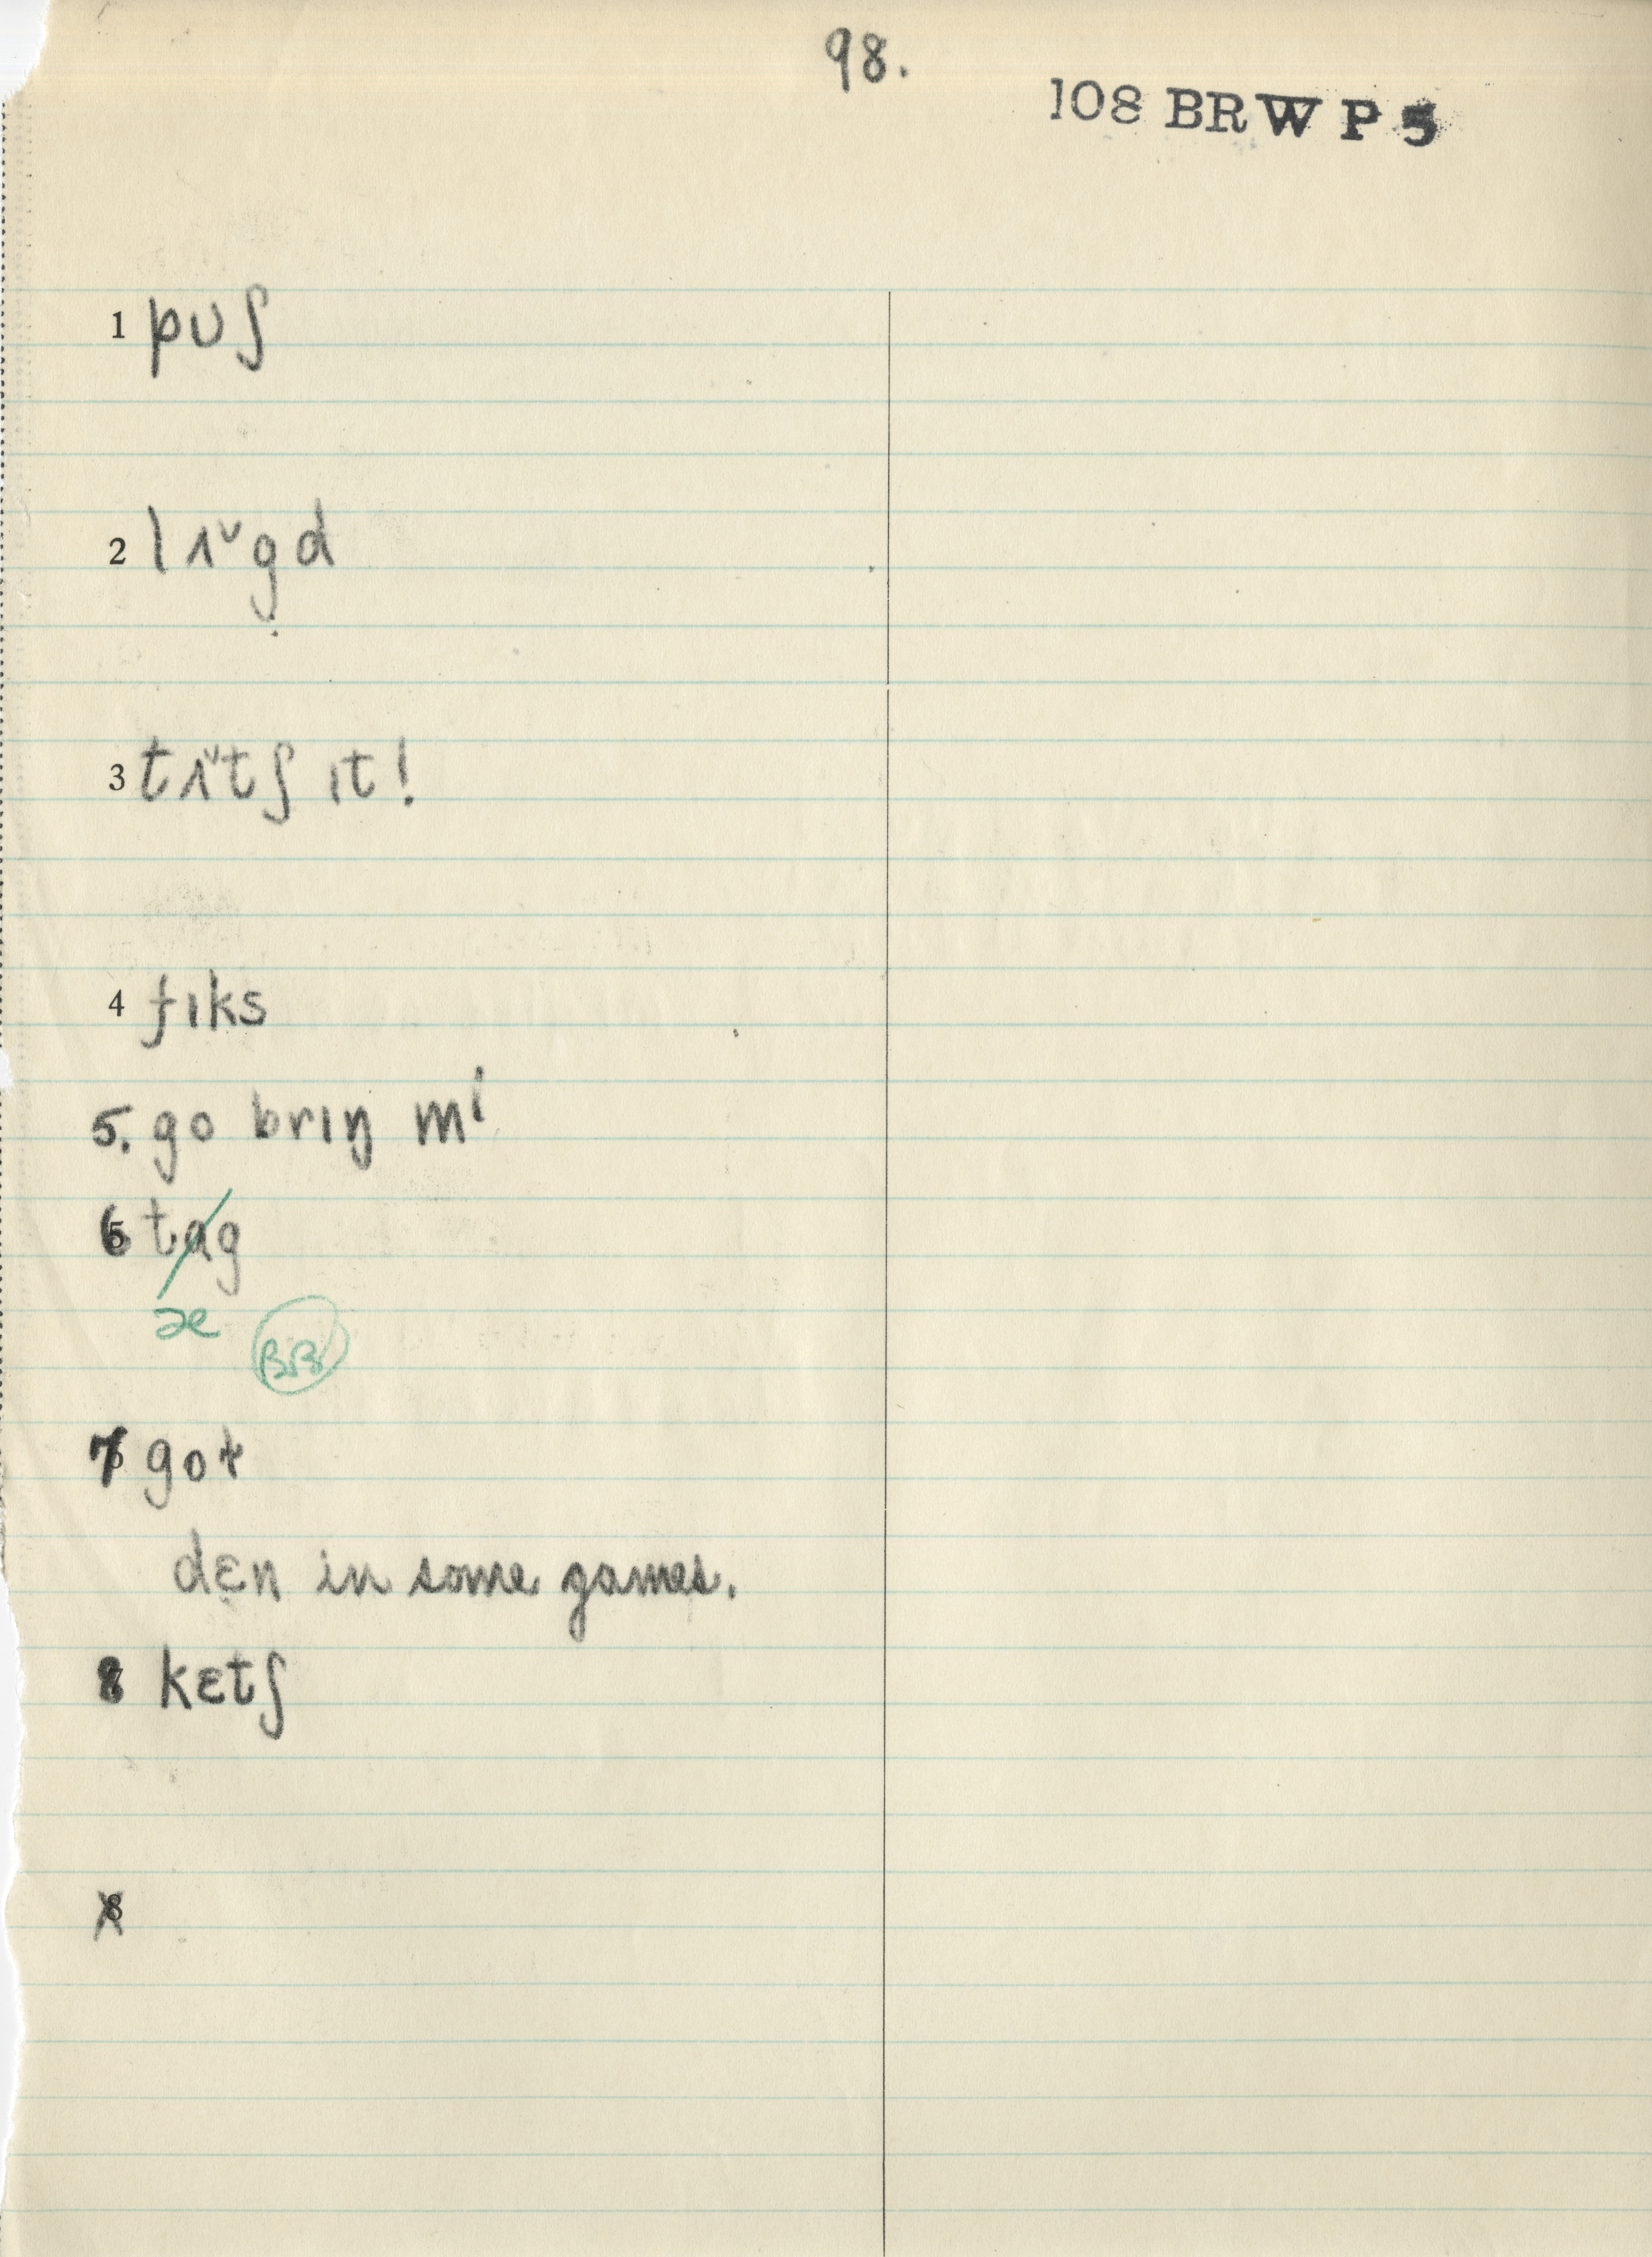 98.
108 BRW P 5
1 pʊʃ
2 lʌ˅gd
3 tʌ˅tʃ ɪt!
4 fɪks
5. go brɪŋ mi
6 tag
æ BB
7 got
dɛn in some games.
8 kɛtʃ
8